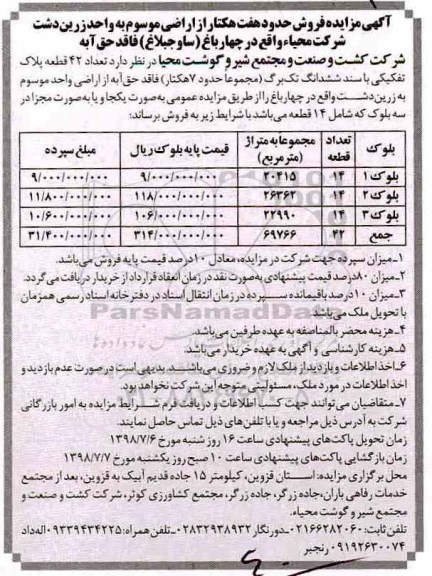 آگهی مزایده فروش حدود هفت هکتار از اراضی موسوم به واحد زرین دشت
شرکت محیاء واقع در چهارباغ (ساوجبلاغ) فاقد حق آبه
شرکت کشت و صنعت و مجتمع شیر و گوشت محیا در نظر دارد تعداد ۴۲ قطعه پلاک
تفکیکی با سند ششدانگ تک‌برگ (مجموعا حدود ۷هکتار) فاقد حق‌آبه از اراضی واحد موسوم
به زرین‌دشت واقع در چهارباغ را از طریق مزایده عمومی به‌صورت یکجا و یا به‌صورت مجزا در
سه بلوک که شامل ۱۴ قطعه می‌باشد با شرایط زیر به فروش برساند:
بلوک تعداد قطعه مجموعا به متراژ (مترمربع) قیمت پایه بلوک ریال مبلغ سپرده
بلوک ۱ ۱۴ ۲۰۴۱۵ ۹/۰۰۰/۰۰۰/۰۰۰ ۹/۰۰۰/۰۰۰/۰۰۰
بلوک ۲ ۱۴ ۲۶۳۶۲ ۱۱۸/۰۰۰/۰۰۰/۰۰۰ ۱۱/۸۰۰/۰۰۰/۰۰۰
بلوک ۳ ۱۴ ۲۲۹۹۰ ۱۰۶/۰۰۰/۰۰۰/۰۰۰ ۱۰/۶۰۰/۰۰۰/۰۰۰
جمع ۴۲ ۶۹۷۶۶ ۳۱۴/۰۰۰/۰۰۰/۰۰۰ ۳۱/۴۰۰/۰۰۰/۰۰۰
۱ـ میزان سپرده جهت شرکت در مزایده، معادل ۱۰درصد قیمت پایه فروش می‌باشد.
۲ـ میزان ۸۰درصد قیمت پیشنهادی به‌صورت نقد در زمان انعقاد قرارداد از خریدار دریافت می‌گردد.
۳ـ میزان ۱۰درصد باقیمانده سپرده در زمان انتقال اسناد در دفترخانه اسناد رسمی همزمان
با تحویل ملک می‌باشد.
ParsNamadData
۴ـ هزینه محضر بالمناصفه به عهده طرفین می‌باشد.
۵ـ هزینه کارشناسی و آگهی به عهده خریدار می‌باشد.
۶ـ اخذ اطلاعات و بازدید از ملک لازم و ضروری می‌باشد. بدیهی است در صورت عدم بازدید و
اخذ اطلاعات در مورد ملک، مسئولیتی متوجه این شرکت نخواهد بود.
۷ـ متقاضیان می‌توانند جهت کسب اطلاعات و دریافت فرم شرایط مزایده به امور بازرگانی
شرکت به آدرس ذیل مراجعه و یا با تلفن‌های ذیل تماس حاصل نمایند.
زمان تحویل پاکت‌های پیشنهادی ساعت ۱۶ روز شنبه مورخ ۱۳۹۸/۷/۶
زمان بازگشایی پاکت‌های پیشنهادی ساعت ۱۰ صبح روز یکشنبه مورخ ۱۳۹۸/۷/۷
محل برگزاری مزایده: استان قزوین، کیلومتر ۱۵ جاده قدیم آبیک به قزوین، بعد از مجتمع
خدمات رفاهی باران، جاده زرگر، جاده زرگر، مجتمع کشاورزی کوثر، شرکت کشت و صنعت و
مجتمع شیر و گوشت محیاء.
تلفن ثابت: ۰۲۱۶۶۲۸۲۰۶۰ـ دورنگار ۰۲۸۳۲۹۳۸۹۳۲ـ تلفن همراه: ۰۹۳۳۹۴۳۴۲۲۵ اله‌داد
۰۹۱۹۲۶۳۰۰۷۴ رنجبر